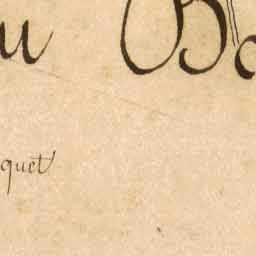 u Bo
quet